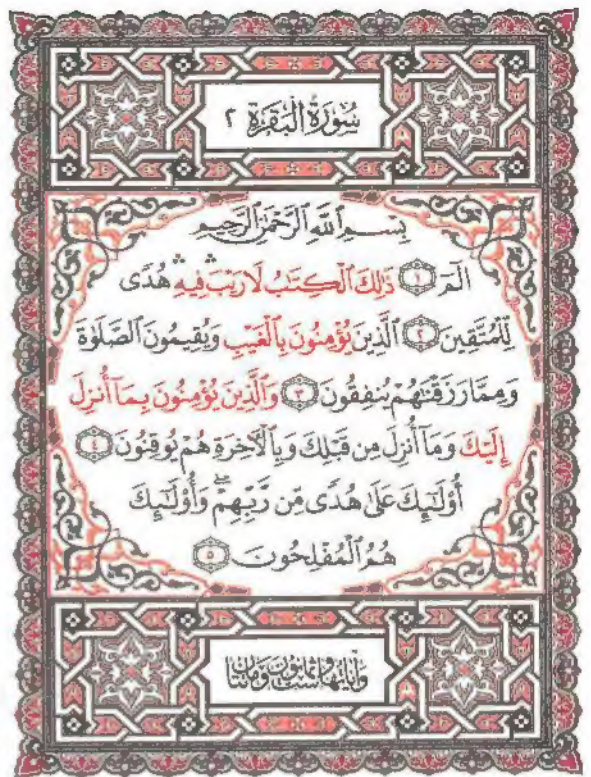 سُورَةُ الْبَقَرَةِ ٢
بِسْمِ ٱللَّهِ ٱلرَّحْمَٰنِ ٱلرَّحِيمِ
الٓمٓ ١ ذَٰلِكَ ٱلْكِتَٰبُ لَا رَيْبَ ۛ فِيهِ ۛ هُدًى
لِّلْمُتَّقِينَ ٢ ٱلَّذِينَ يُؤْمِنُونَ بِٱلْغَيْبِ وَيُقِيمُونَ ٱلصَّلَوٰةَ
وَمِمَّا رَزَقْنَٰهُمْ يُنفِقُونَ ٣ وَٱلَّذِينَ يُؤْمِنُونَ بِمَآ أُنزِلَ
إِلَيْكَ وَمَآ أُنزِلَ مِن قَبْلِكَ وَبِٱلْآخِرَةِ هُمْ يُوقِنُونَ ٤
أُو۟لَٰٓئِكَ عَلَىٰ هُدًى مِّن رَّبِّهِمْ ۖ وَأُو۟لَٰٓئِكَ
هُمُ ٱلْمُفْلِحُونَ ٥
وَآيَاتُهَا سِتٌّ وَثَمَانُونَ وَمِائَتَانِ